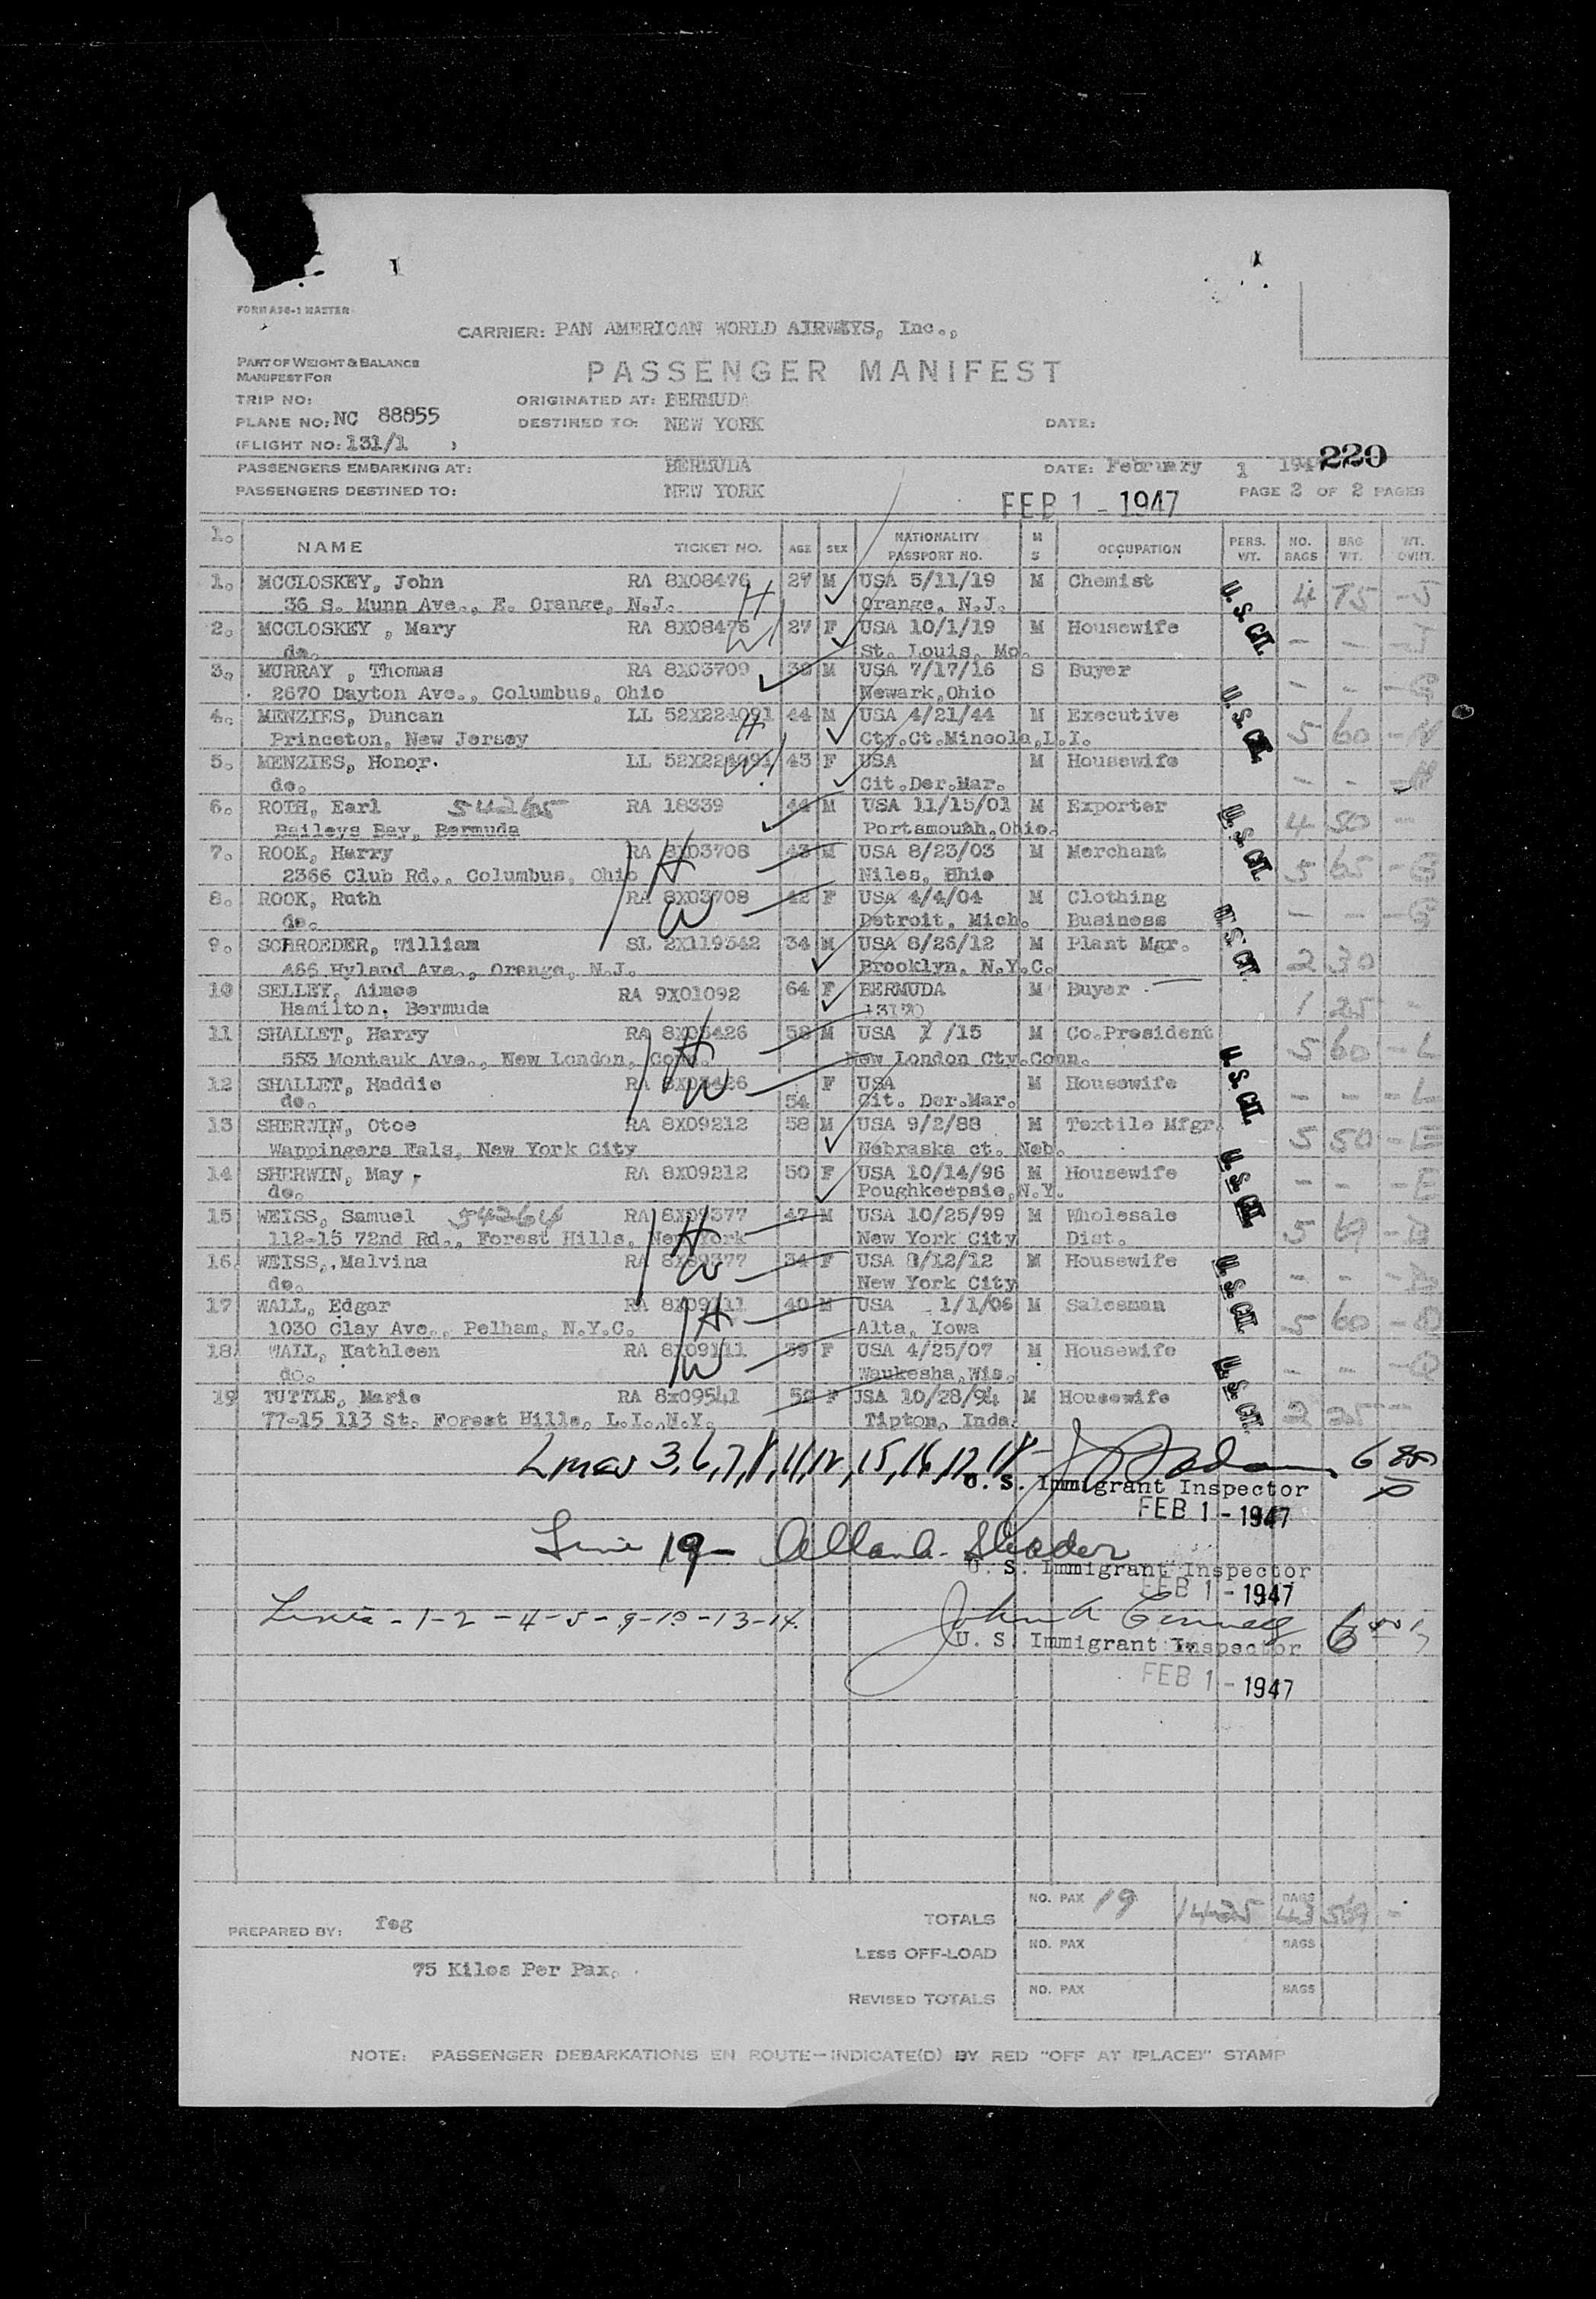 FORM A36-1 MASTER
CARRIER: PAN AMERICAN WORLD AIRWAYS, Inc.,
PART OF WEIGHT & BALANCE
MANIFEST FOR
PASSENGER MANIFEST
TRIP NO: ORIGINATED AT: BERMUDA
PLANE NO: NC 88855 DESTINED TO: NEW YORK DATE:
(FLIGHT NO: 131/1 )
PASSENGERS EMBARKING AT: BERMUDA DATE: February 1 194 220
PASSENGERS DESTINED TO: NEW YORK PAGE 2 OF 2 PAGES
FEB 1 - 1947
1. NAME TICKET NO. AGE SEX NATIONALITY PASSPORT NO. M S OCCUPATION PERS. WT. NO. BAGS BAG WT. WT. OVHT.
1. MCCLOSKEY, John RA 8X08476 27 M USA 5/11/19 M Chemist 4 75 -5
36 S. Munn Ave., E. Orange, N.J. H Orange, N.J. U.S. CIT.
2. MCCLOSKEY , Mary RA 8X08475 27 F USA 10/1/19 M Housewife - -
do. W St. Louis, Mo.
3. MURRAY , Thomas RA 8X03709 30 M USA 7/17/16 S Buyer - - -G
2670 Dayton Ave., Columbus, Ohio Newark,Ohio U.S. CIT.
4. MENZIES, Duncan LL 52X224091 44 M USA 4/21/44 M Executive 5 60 -N
Princeton, New Jersey H Cty.Ct.Mineola,L.I.
5. MENZIES, Honor. LL 52X224091 43 F USA M Housewife - -
do. W Cit.Der.Mar.
6. ROTH, Earl 54265 RA 18339 44 M USA 11/15/01 M Exporter 4 50 -
Baileys Bay, Bermuda Portsmouth,Ohio. U.S. CIT.
7. ROOK, Harry RA 8X03708 H 43 M USA 8/23/03 M Merchant 5 65 -G
2366 Club Rd., Columbus, Ohio Niles, Ohio
8. ROOK, Ruth RA 8X03708 W 42 F USA 4/4/04 M Clothing - - -G
do. Detroit, Mich. Business U.S. CIT.
9. SCHROEDER, William SL 2X119342 34 M USA 8/26/12 M Plant Mgr. 2 30
466 Hyland Ave., Orange, N.J. Brooklyn, N.Y.C.
10 SELLEY, Aimee RA 9X01092 64 F BERMUDA M Buyer 1 25 -
Hamilton, Bermuda
11 SHALLET, Harry RA 8X03426 H 58 M USA 7 /15 M Co.President 5 60 -L
553 Montauk Ave., New London, Conn. New London Cty.Conn. U.S. CIT.
12 SHALLET, Maddie RA 8X03426 W F USA M Housewife - - -L
do. 54 Cit. Der.Mar.
13 SHERWIN, Otoe RA 8X09212 58 M USA 9/2/88 M Textile Mfgr. 5 50 -E
Wappingers Fals, New York City Nebraska ct. Neb. U.S. CIT.
14 SHERWIN, May RA 8X09212 50 F USA 10/14/96 M Housewife - - -E
do. Poughkeepsie,N.Y.
15 WEISS, Samuel 54264 RA 8X09377 H 47 M USA 10/25/99 M Wholesale 5 69 -B
112-15 72nd Rd., Forest Hills, New York New York City Dist.
16. WEISS,.Malvina RA 8X09377 W 34 F USA /12/12 M Housewife - -
do. New York City U.S. CIT.
17 WALL, Edgar RA 8X09111 H 40 M USA 1/1/06 M Salesman 5 60
1030 Clay Ave., Pelham, N.Y.C. Alta, Iowa
18 WALL, Kathleen RA 8X09111 W 39 F USA 4/25/07 M Housewife - -
do. Waukesha,Wis. U.S. CIT.
19 TUTTLE, Marie RA 8x09541 52 F USA 10/28/94 M Housewife 2 25 -
77-15 113 St. Forest Hills, L.I.,N.Y. Tipton, Inda.
Lines 3,6,7,8,11,12,15,16,17,18- 6
U. S. Immigrant Inspector
FEB 1 - 1947
Line 19-
U. S. Immigrant Inspector
FEB 1 - 1947
Lines - 1-2 - 4-5-9-10-13-14. John A 6
U. S. Immigrant Inspector
FEB 1 - 1947
PREPARED BY: feg TOTALS NO. PAX 19 1425 BAGS 43 569 -
LESS OFF-LOAD NO. PAX BAGS
75 Kilos Per Pax.
REVISED TOTALS NO. PAX BAGS
NOTE: PASSENGER DEBARKATIONS EN ROUTE—INDICATE(D) BY RED "OFF AT (PLACE)" STAMP